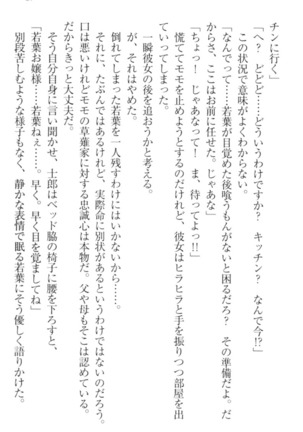 チンに行く」
「へ？　どどど……どういうわけですか？　キッチン？　なんで今!?」
この状況で意味がよくわからない。
「なんでって……若葉が目覚めた後喰うもんがないと困るだろ？　その準備だよ。だ
からさ、ここはお前に任せた。じゃあな」
「ちょっ！　じゃあなって！　ま、待ってよっ!!」
慌ててモモを止めようとするのだけれど、彼女はヒラヒラと手を振りつつ部屋を出
ていってしまった。
一瞬彼女の後を追おうかと考える。
が、それはやめた。
倒れてしまった若葉を一人残すわけにはいかないから……。
それに、たぶんではあるけれど、実際命に別状があるというわけではないのだろう。
口は悪いけれどモモの草薙家に対する忠誠心は本物だ。父や母もそこは認めている。
だからきっと大丈夫だ。
そう自分自身に言い聞かせ、士郎はベッド脇の椅子に腰を下ろすと、
「若葉お嬢様……若葉ねぇ……。早く。早く目を覚ましてね」
別段苦しむような様子もなく、静かな表情で眠る若葉にそう優しく語りかけた。